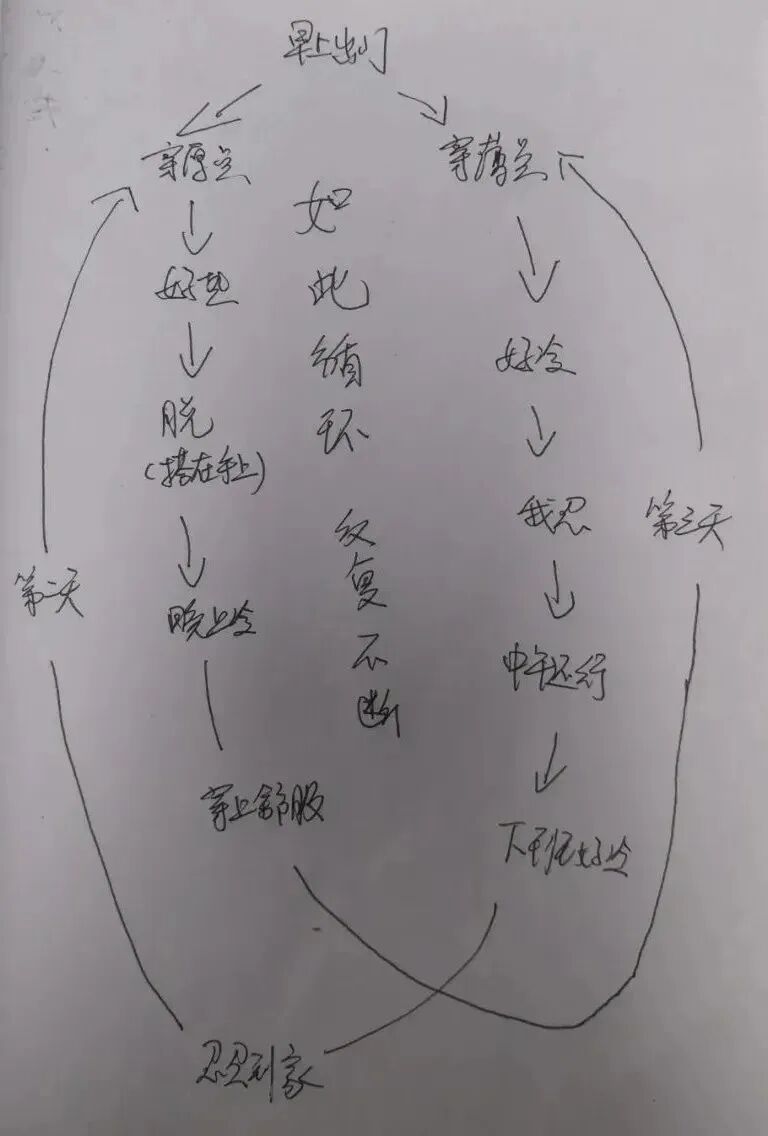 早上出门
穿厚点
穿薄点
如此循环 反复不断
好热
好冷
脱
(搭在手上)
我忍
第二天
第三天
晚上冷
中午还行
穿上舒服
下班好冷
忍忍到家